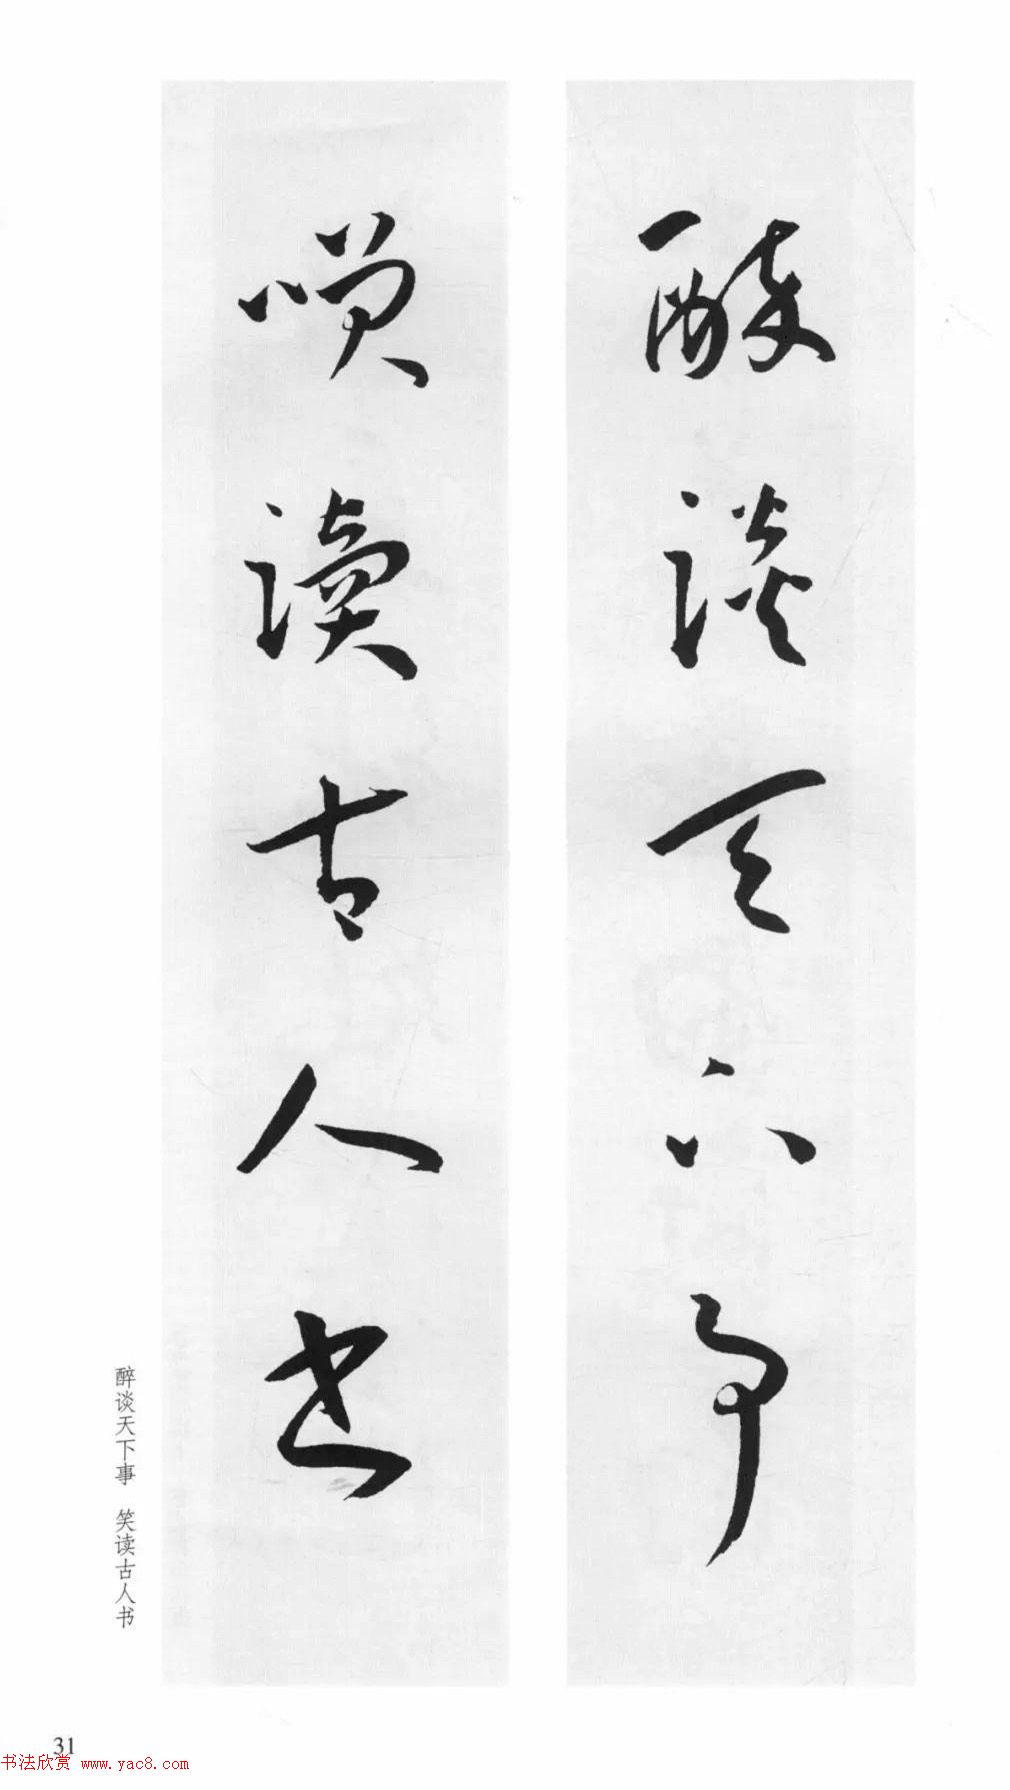 醉談天下事
咲讀古人書
醉谈天下事 笑读古人书
31
书法欣赏 www.yac8.com